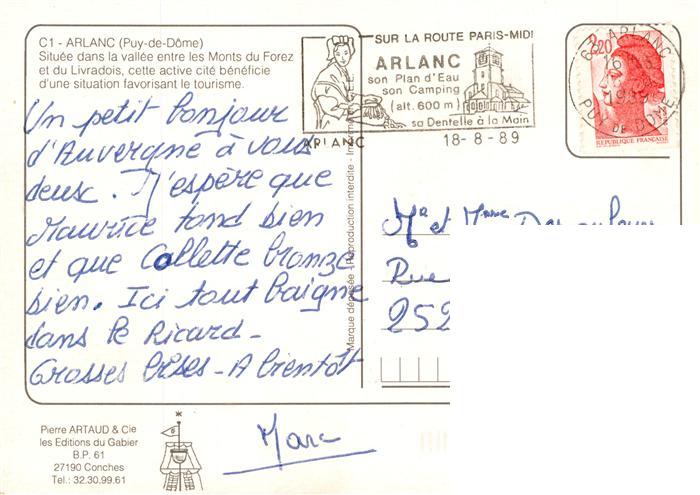 C1 - ARLANC (Puy-de-Dôme)
Située dans la vallée entre les Monts du Forez
et du Livradois, cette active cité bénéficie
d'une situation favorisant le tourisme.
Un petit bonjour
d'Auvergne à vous
deux. J'espère que
Maurice tond bien
et que Collette bronze
bien. Ici tout baigne
dans le Ricard -
Grosses bises - A bientôt
Marc
Pierre ARTAUD & Cie
les Editions du Gabier
B.P. 61
27190 Conches
Tel.: 32.30.99.61
Marque déposée - Reproduction interdite -
SUR LA ROUTE PARIS-MIDI
ARLANC
son Plan d'Eau
son Camping
(alt. 600 m)
sa Dentelle à la Main
ARLANC
18-8-89
ARLANC
PUY DE DOME
2,20
REPUBLIQUE FRANÇAISE
Mr et Mme
Rue
252